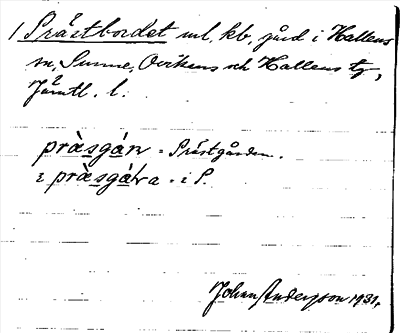 1 Prästbordet ml, kb, gård i Hallens
sn, Sunne, Ovikens och Hallens tg,
Jämtl. l.
pràsgán = Prästgården.
i pràsgáʹra = i P.
Johan Anderzson 1931,